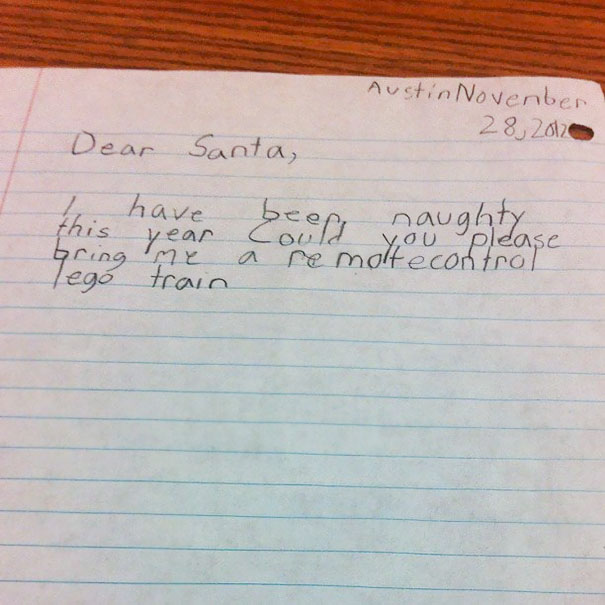 Austin November
28, 2012
Dear Santa,
I have been naughty
this year Could you please
bring me a remotecontrol
lego train